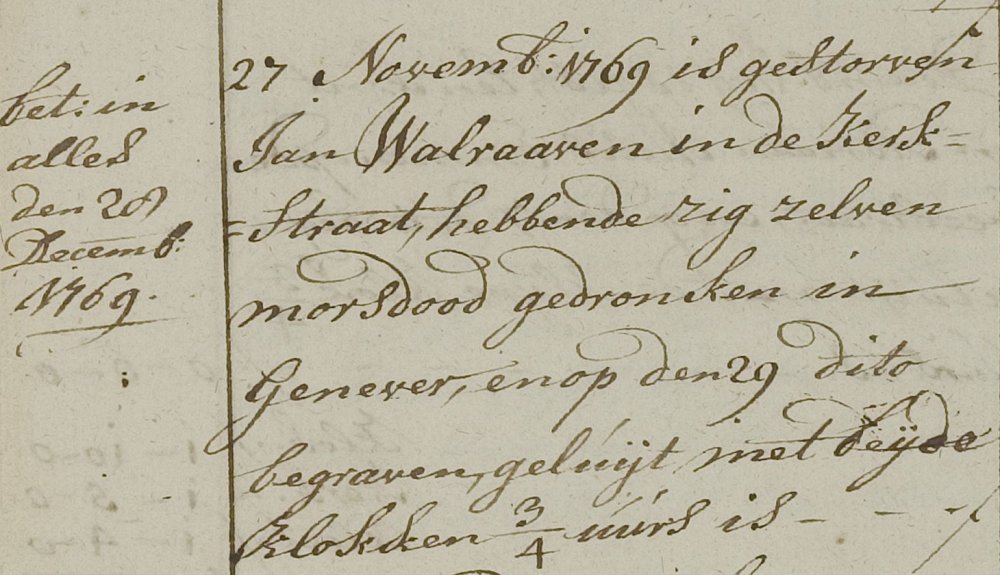 bet: in
alles
den 28
Decemb:
1769.
27 Novemb: 1769 is gestorven
Jan Walraaven in de Kerk=
=straat, hebbende zig zelven
morsdood gedroncken in
Genever, en op den 29 dito
begraven, gelúijt met beÿde
klokken 3/4 úúrs is - - -